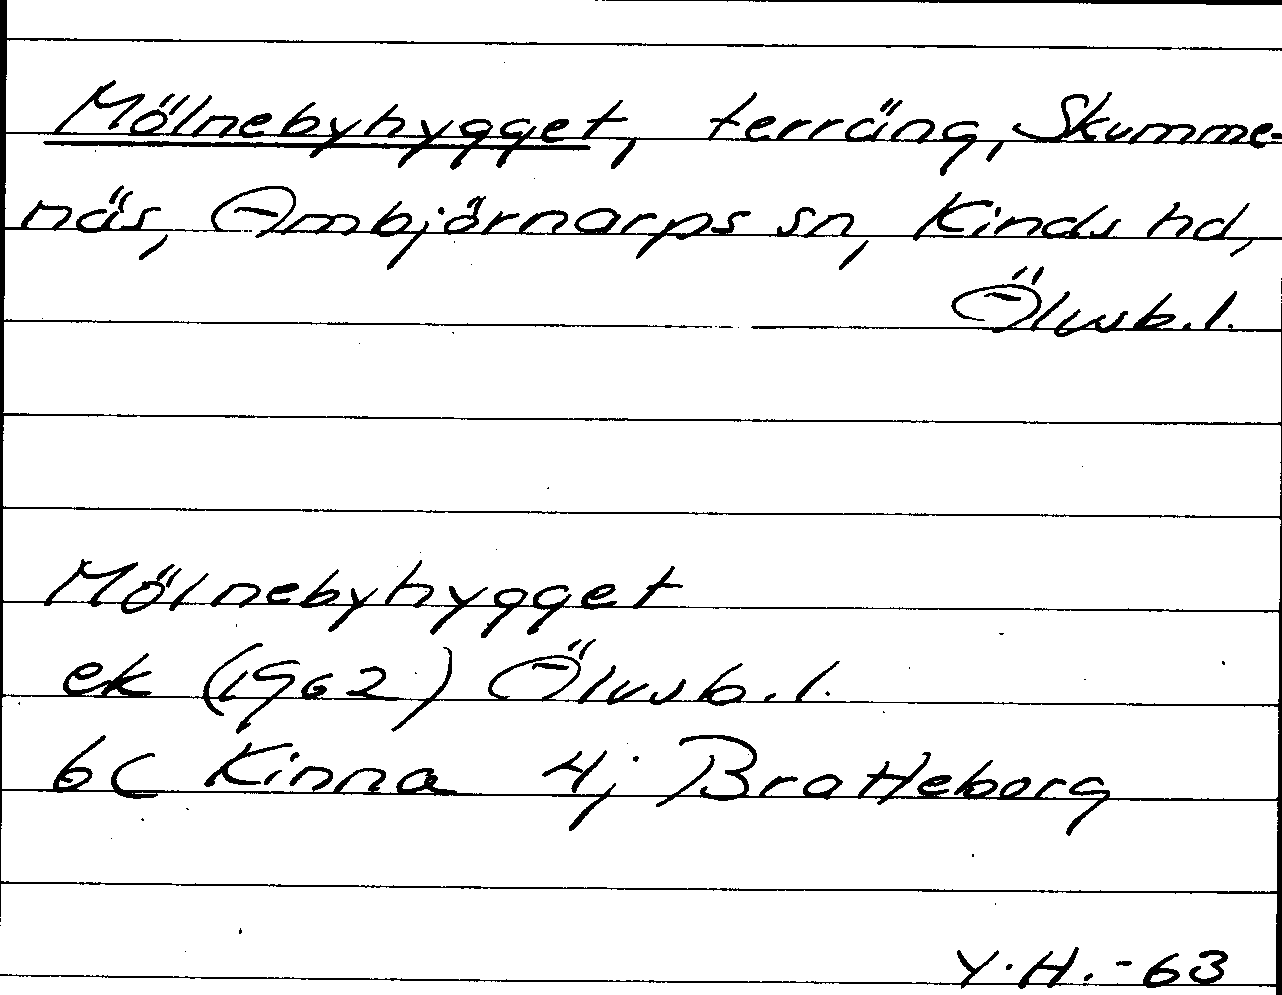 Mölnebyhygget, terräng, Skumme-
näs, Ambjörnarps sn, Kinds hd,
Älvsb.l.
Mölnebyhygget
ek (1962) Älvsb.l.
6C Kinna 4j Bratteborg
Y.H.-63